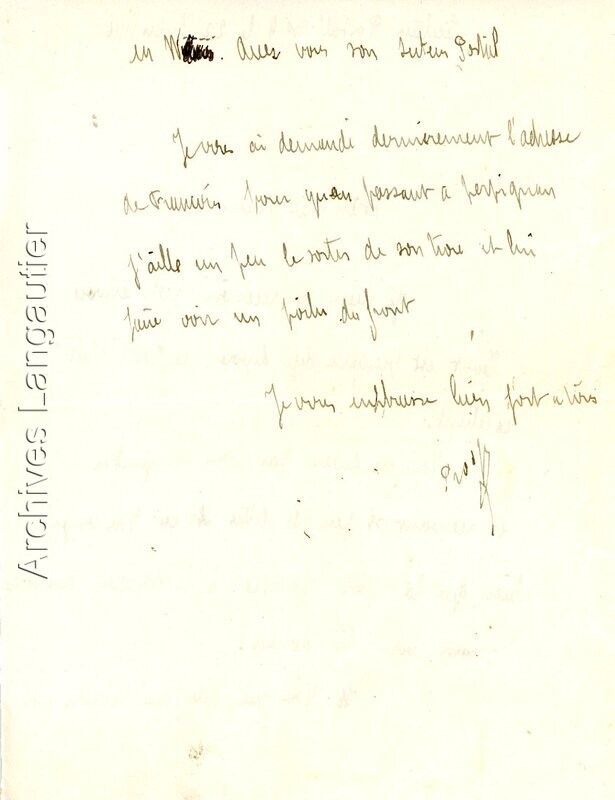 en
avez vous son secteur Postal
Je vous ai demandé dernièrement l'adresse
de Francois pour quan passant a perpignan
j'aille un peu le sortir de son trou et lui
faire voir un poilu du front
Je vous embrasse bien fort a tous
Archives Langautier